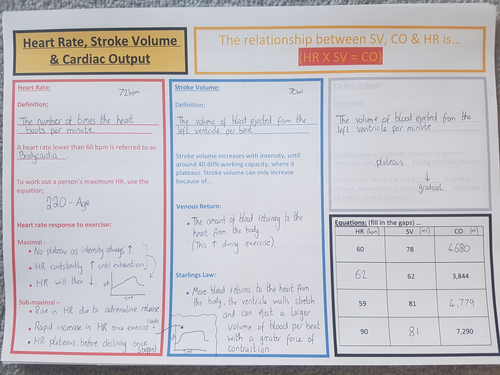 Heart Rate, Stroke Volume
& Cardiac Output
The relationship between SV, CO & HR is...
(HR X SV = CO)
Heart Rate:
72bpm
Definition;
The number of times the heart
beats per minute.
A heart rate lower than 60 bpm is referred to as
Bradycardia.
To work out a person's maximum HR, use the
equation;
220 - Age
Heart rate response to exercise:
Maximal –
• No plateau as intensity always ↑
• HR constantly ↑ until exhaustion
• HR will then ↓.
Sub-maximal –
• Rise in HR due to adrenaline release.
• Rapid increase in HR once exercise starts
• HR plateaus, before declining once stopped
Stroke Volume:
70ml
Definition;
The volume of blood ejected from the
left ventricle per beat
Stroke volume increases with intensity, until
around 40-60% working capacity, where it
plateaus. Stroke volume can only increase
because of...
Venous Return:
• The amount of blood returning to the
heart from the body.
(This ↑ during exercise)
Starlings Law:
• More blood returns to the heart from
the body, the ventricle walls stretch
and can eject a larger
volume of blood per beat
with a greater force of
contraction.
Cardiac Output:
Definition;
The volume of blood ejected from the
left ventricle per minute.
plateaus
↓
gradual
Equations: (fill in the gaps) ...
HR (bpm) SV (ml) CO (ml)
60 78 4,680
62 62 3,844
59 81 4,779
90 81 7,290